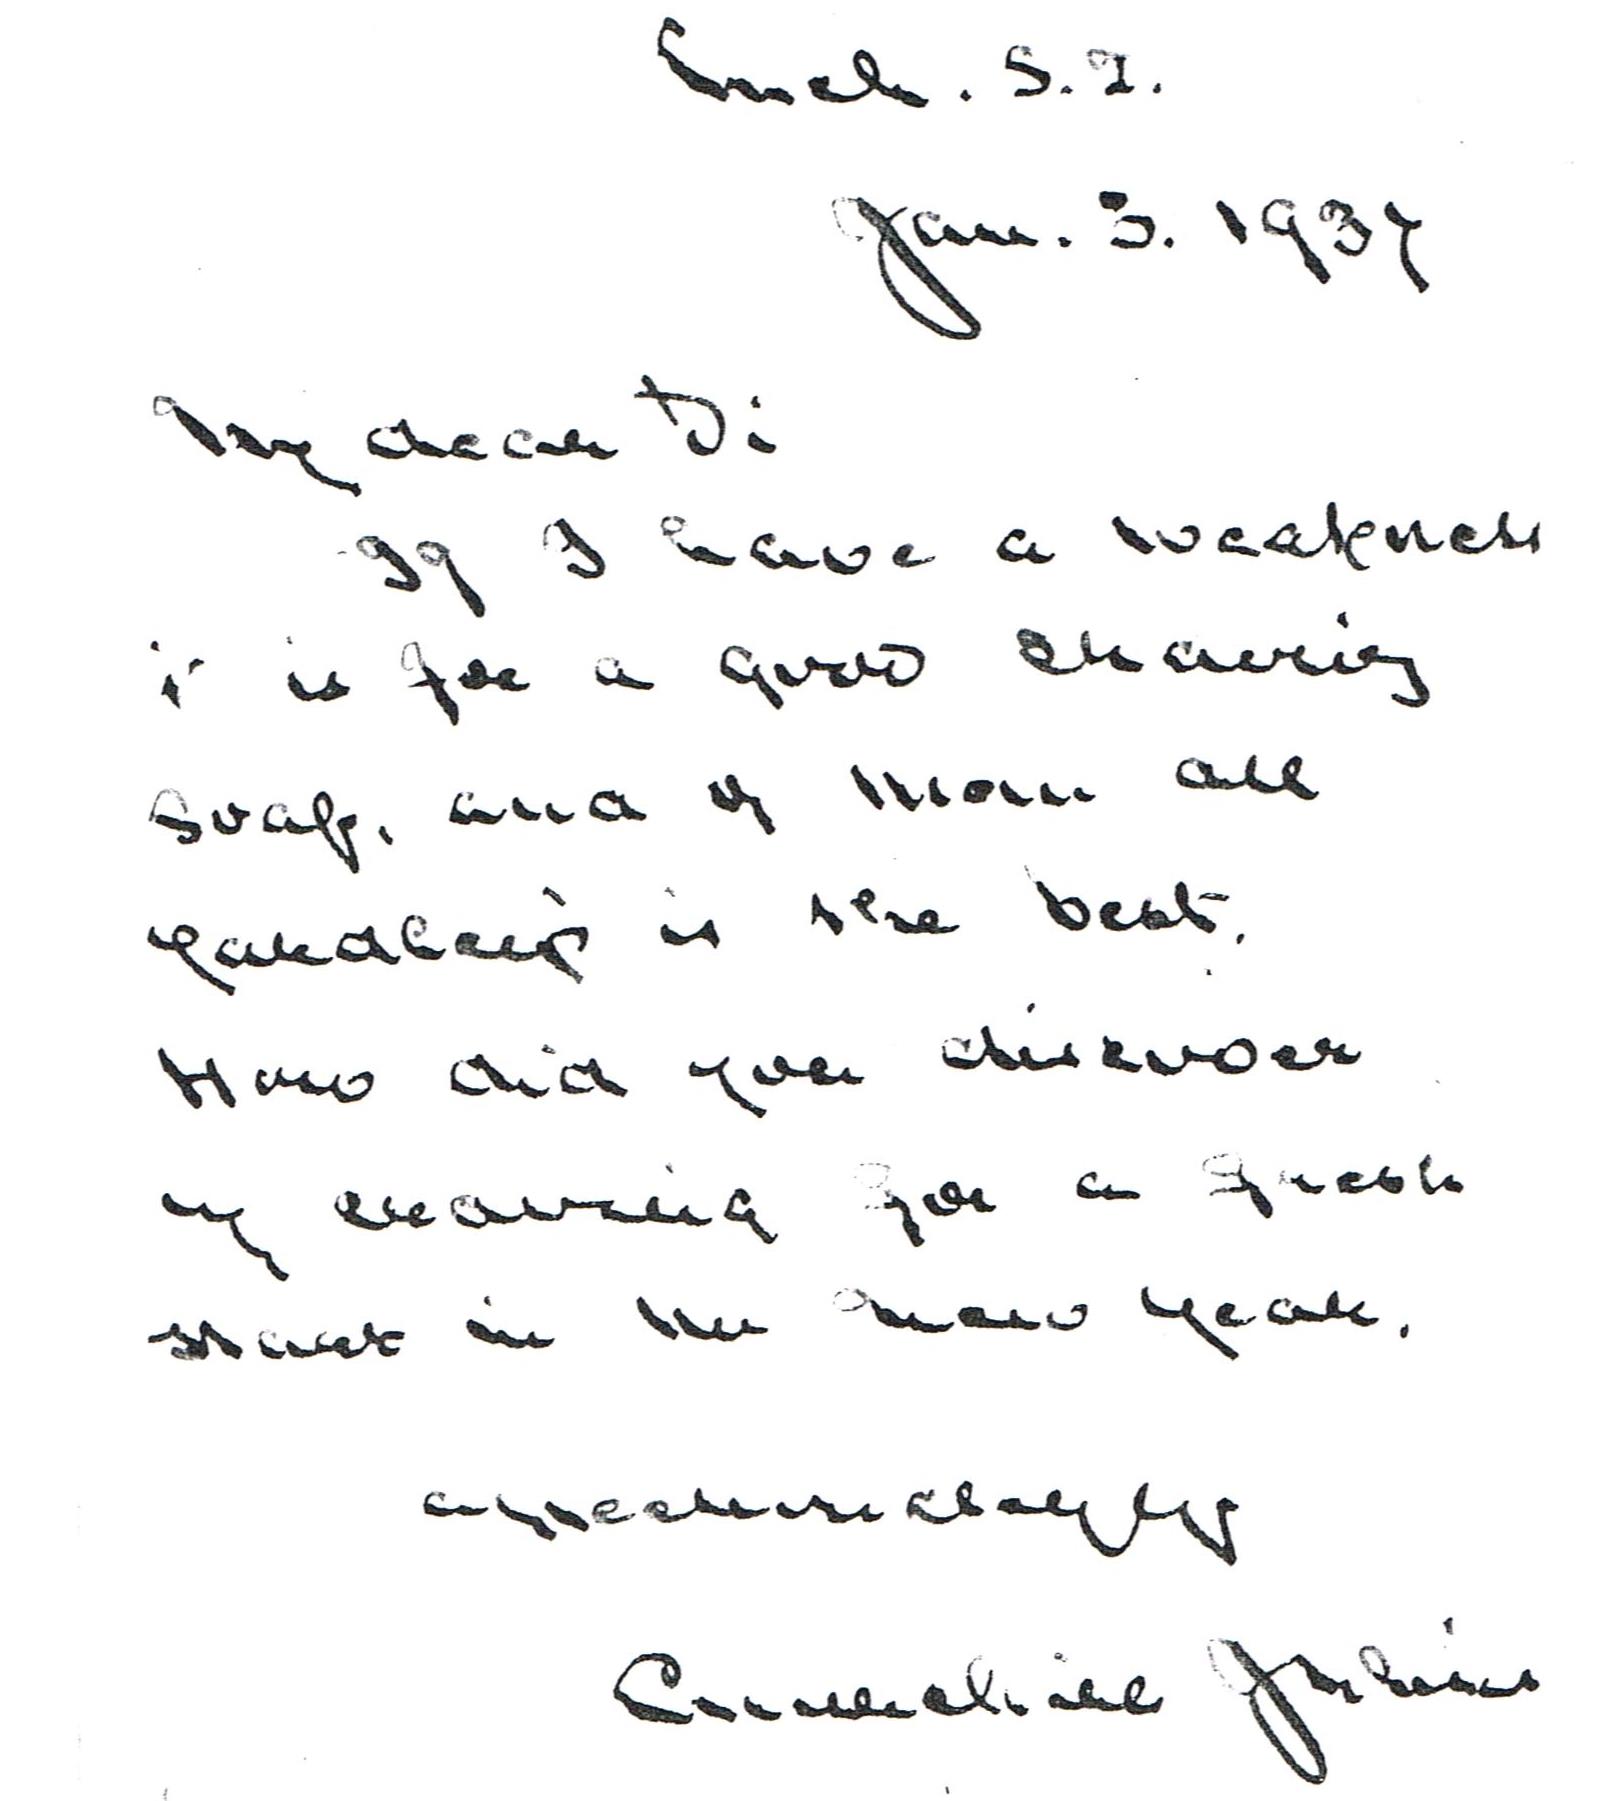 Jan. 3. 1937
My dear Di
If I have a weakness
it is for a good shaving
soap, and of them all
Yardley's is the best.
How did you discover
my craving for a fresh
start in the new year.
affectionately yrs
Churchill Julius